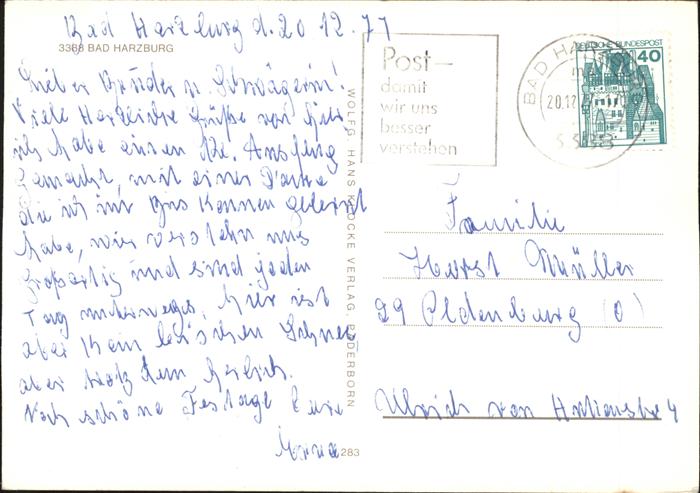 Bad Harzburg d. 20 12. 77
3388 BAD HARZBURG
Lieber Bruder u. Schwägerin!
Viele Grüße von hier,
ich habe einen Ausflug
gemacht, mit einer
die ich im Kennen gelernt
habe, wir verstehn uns
Großartig und sind jeden
Tag unterwegs, hier ist
aber kein bischen Schnee
aber trotz dem herlich.
Noch schöne Festage Eure
283
WOLFG. HANS KLOCKE VERLAG, PADERBORN
Post-
damit
wir uns
besser
verstehen
BAD HARZBURG
20.12.77
DEUTSCHE BUNDESPOST
40
Familie
Horst Müller
29 Oldenburg (O)
Ulrich von 4